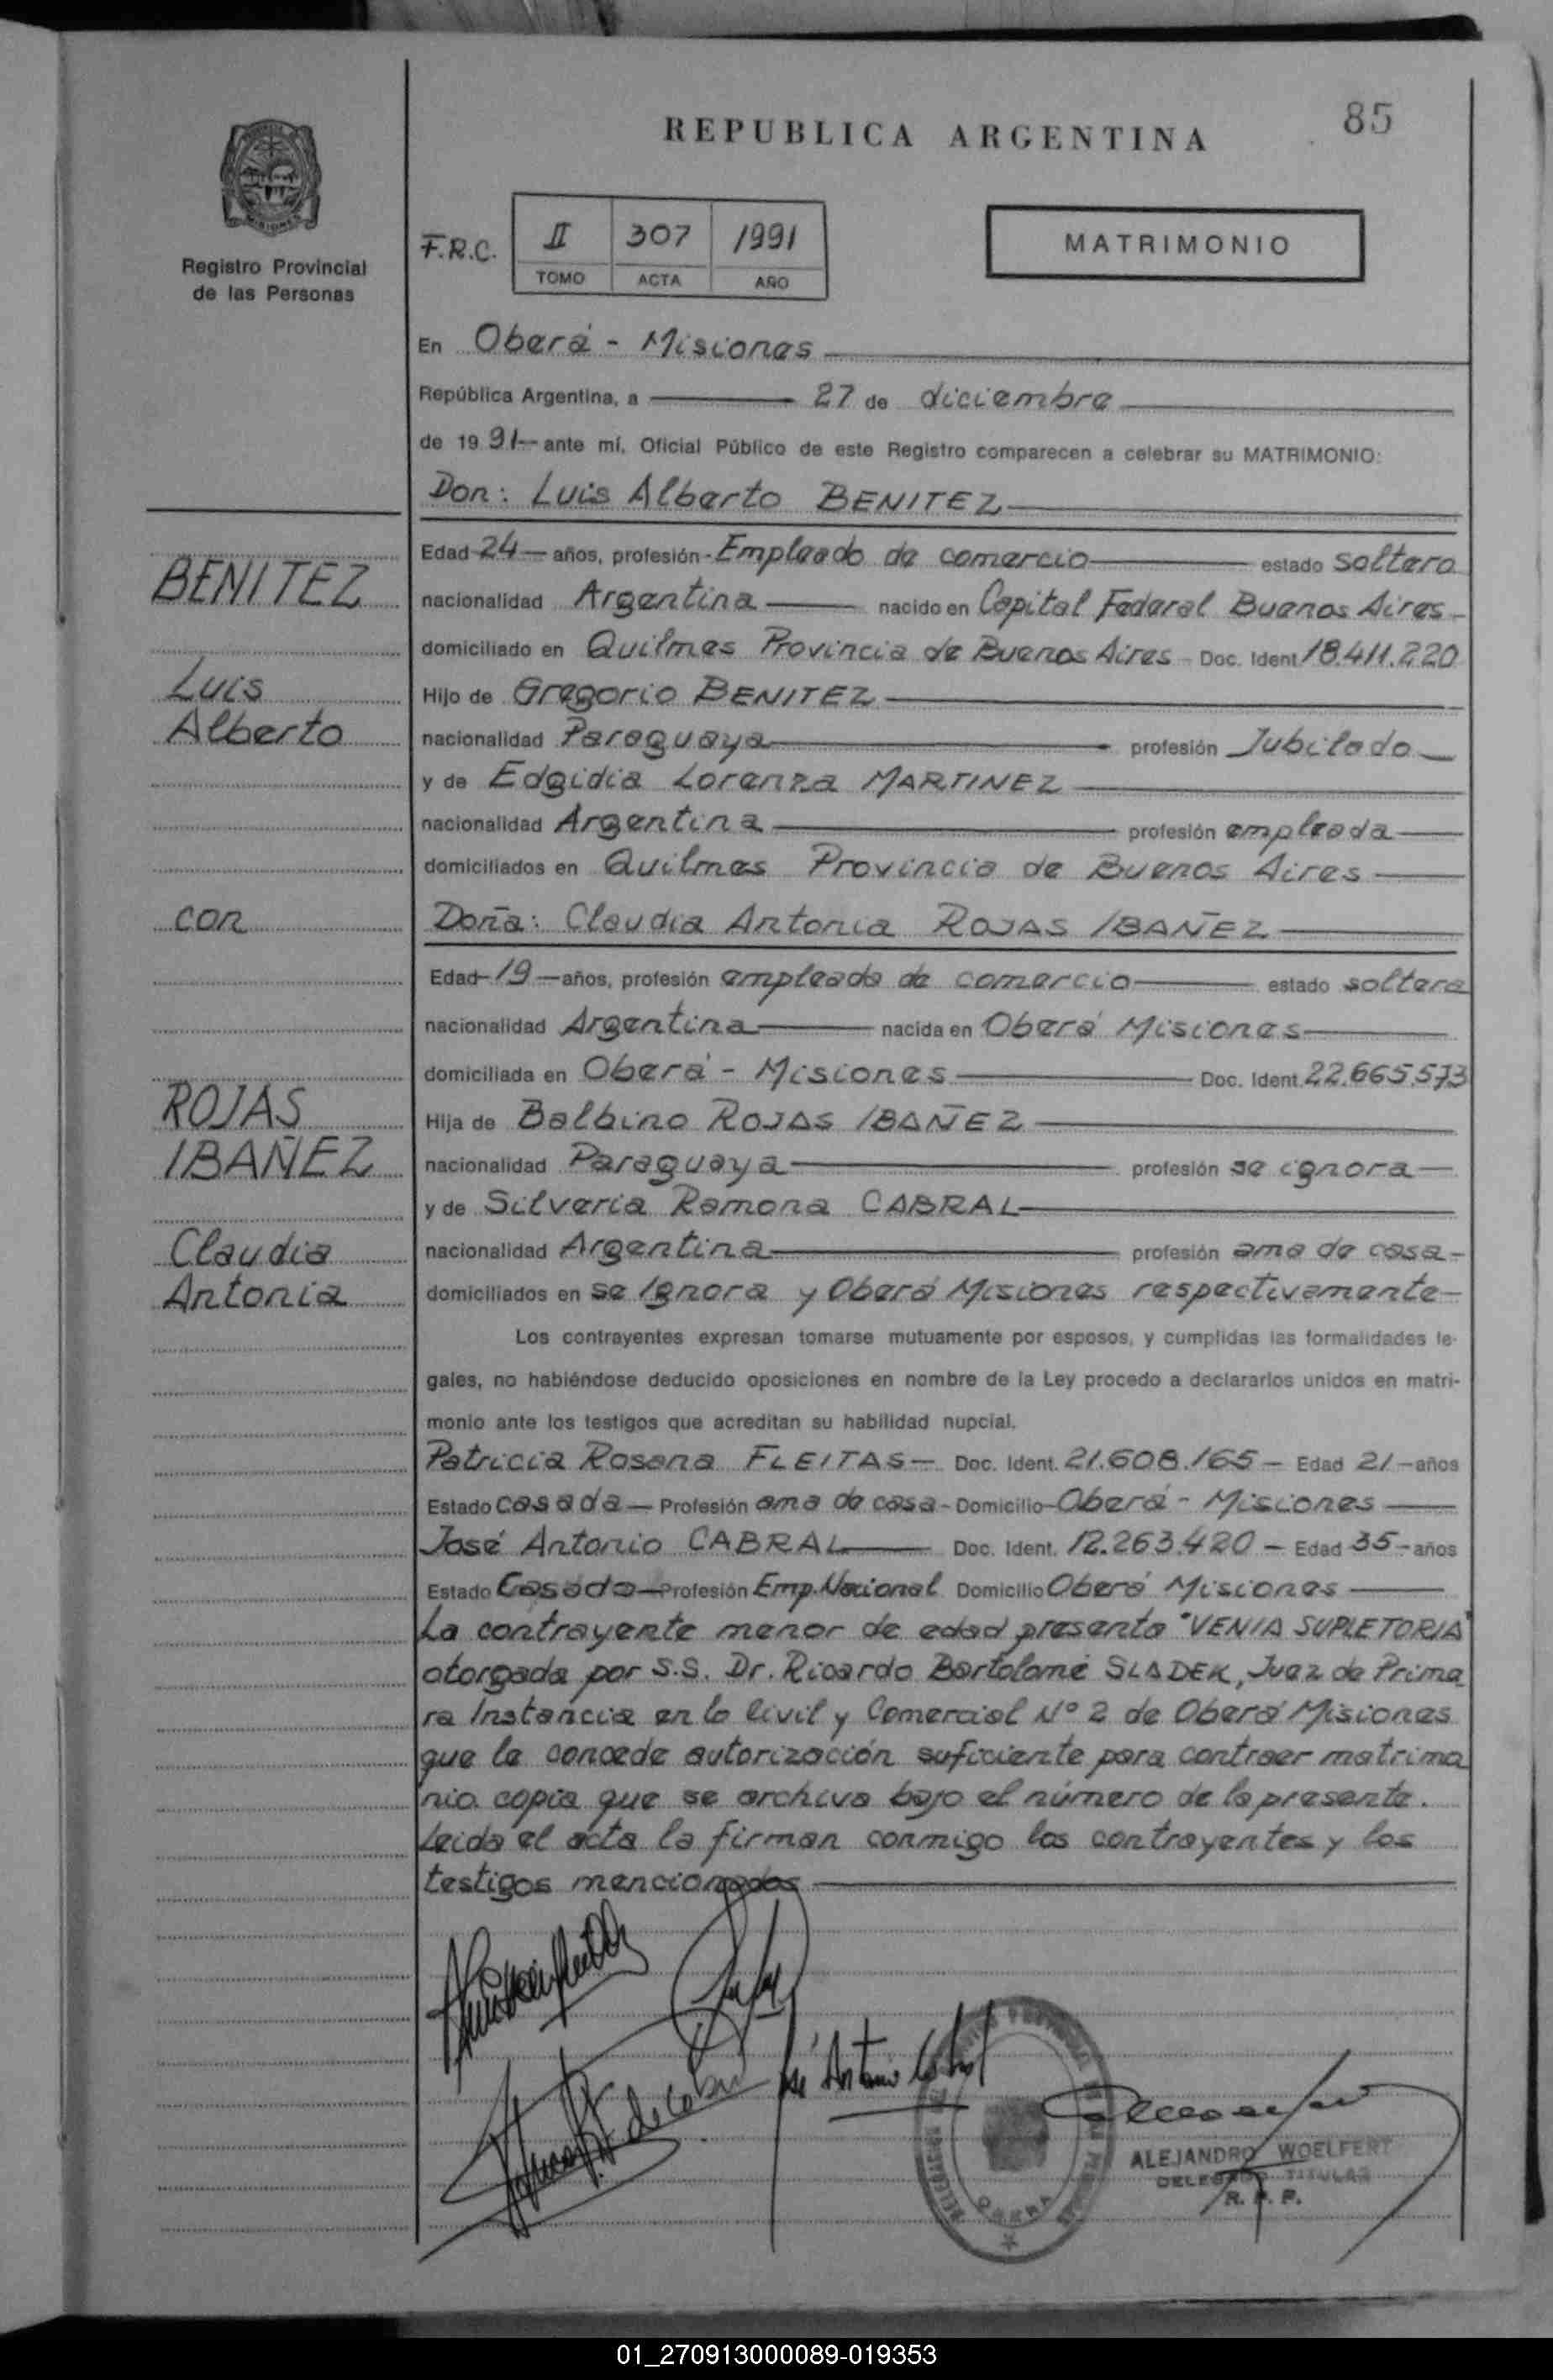 85
REPUBLICA ARGENTINA
Registro Provincial
de las Personas
F.R.C.
II 307 1991
TOMO ACTA AÑO
MATRIMONIO
En Oberá - Misiones
República Argentina, a 27 de diciembre
de 1991 ante mí, Oficial Público de este Registro comparecen a celebrar su MATRIMONIO:
Don: Luis Alberto BENITEZ
Edad 24 años, profesión Empleado de comercio estado soltero
nacionalidad Argentina nacido en Capital Federal Buenos Aires
domiciliado en Quilmes Provincia de Buenos Aires Doc. Ident 18.411.220
Hijo de Gregorio BENITEZ
nacionalidad Paraguaya profesión Jubilado
y de Edgidia Lorenza MARTINEZ
nacionalidad Argentina profesión empleada
domiciliados en Quilmes Provincia de Buenos Aires
Doña: Claudia Antonia ROJAS IBAÑEZ
Edad 19 años, profesión empleada de comercio estado soltera
nacionalidad Argentina nacida en Oberá Misiones
domiciliada en Oberá - Misiones Doc. Ident. 22.665.573
Hija de Balbino ROJAS IBAÑEZ
nacionalidad Paraguaya profesión se ignora
y de Silveria Ramona CABRAL
nacionalidad Argentina profesión ama de casa
domiciliados en se Ignora y Oberá Misiones respectivamente
Los contrayentes expresan tomarse mutuamente por esposos, y cumplidas las formalidades le-
gales, no habiéndose deducido oposiciones en nombre de la Ley procedo a declararlos unidos en matri-
monio ante los testigos que acreditan su habilidad nupcial.
Patricia Rosana FLEITAS Doc. Ident. 21.608.165 Edad 21 años
Estado casada Profesión ama de casa Domicilio Oberá - Misiones
José Antonio CABRAL Doc. Ident. 12.263.420 Edad 35 años
Estado Casado Profesión Emp. Nacional Domicilio Oberá Misiones
La contrayente menor de edad presenta "VENIA SUPLETORIA"
otorgada por S.S. Dr. Ricardo Bartolomé SLADEK, Juez de Prime
ra Instancia en lo Civil y Comercial Nº 2 de Oberá Misiones
que le concede autorización suficiente para contraer matrimo
nio copia que se archiva bajo el número de la presente.
Leida el acta la firman conmigo los contrayentes y los
testigos mencionados
BENITEZ
Luis
Alberto
con
ROJAS
IBAÑEZ
Claudia
Antonia
José Antonio Cabral
OBERA
ALEJANDRO WOELFERT
DELEGADO TITULAR
R. P. P.
01_270913000089-019353